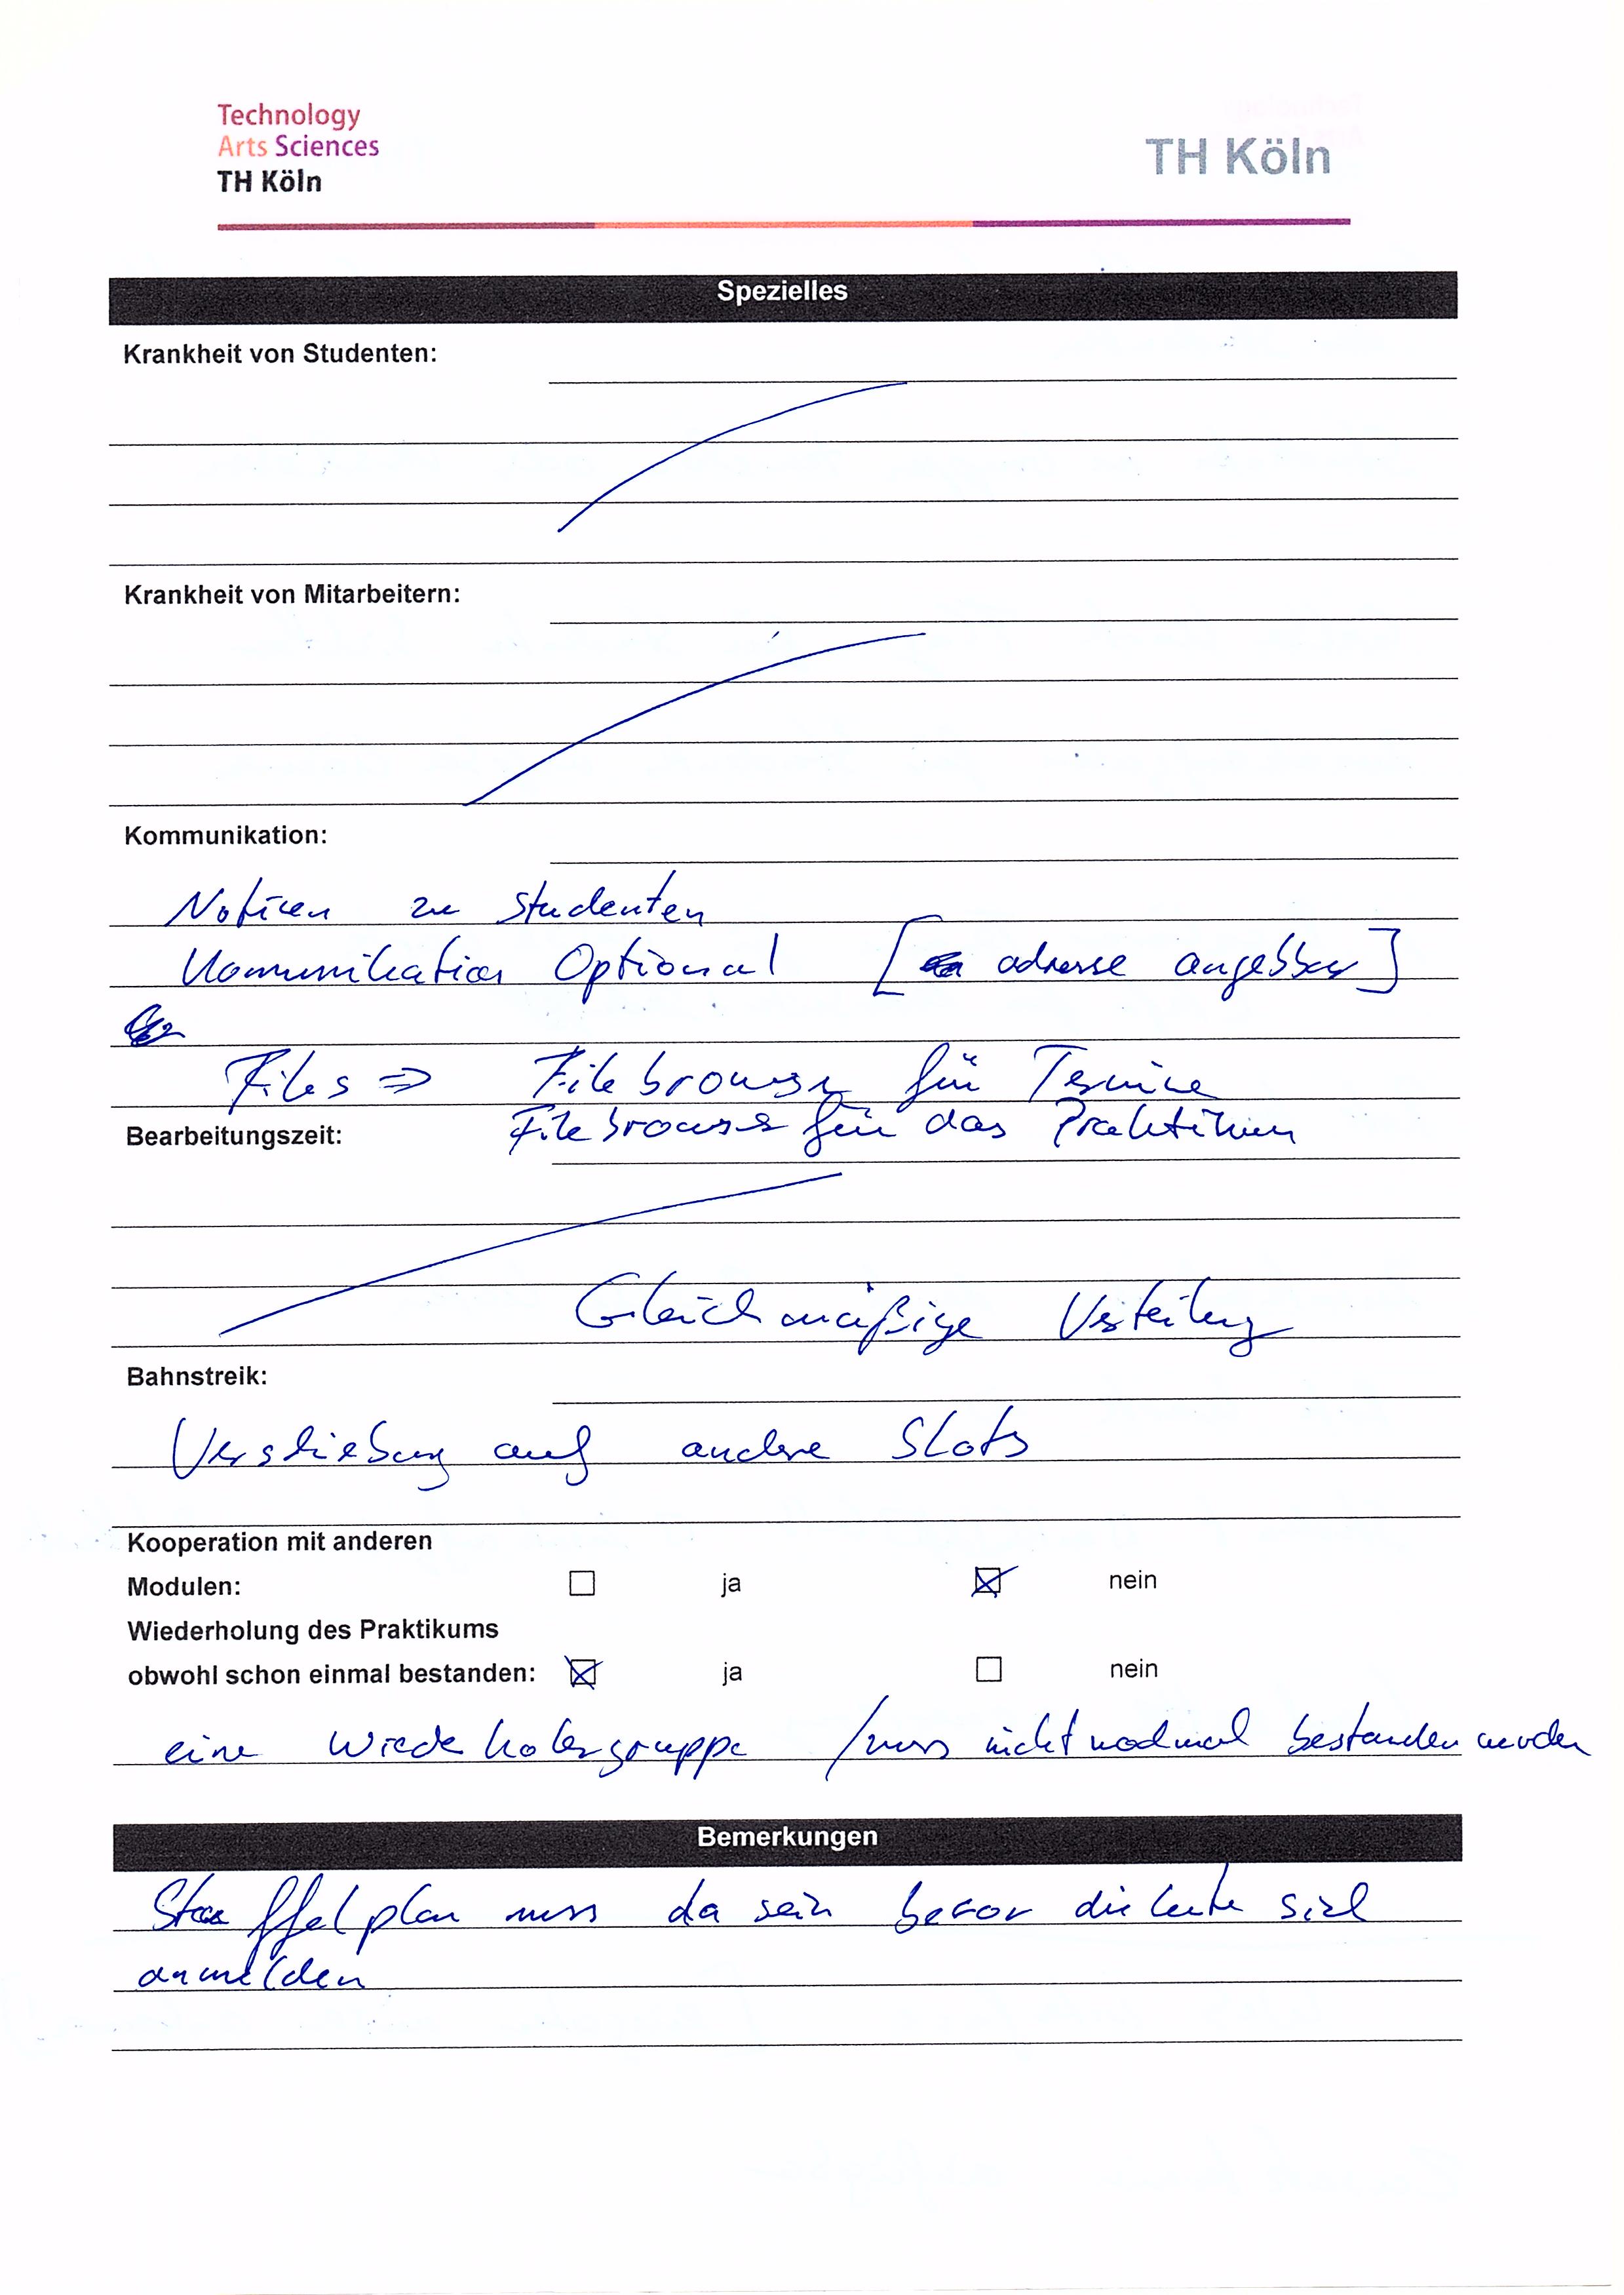 Technology
Arts Sciences
TH Köln
TH Köln
Spezielles
Krankheit von Studenten:
Krankheit von Mitarbeitern:
Kommunikation:
Notizen zu Studenten
Kommunikation Optional [ adresse angebbar ]
Files => Filebrowser für Termine
Filebrowser für das Praktikum
Bearbeitungszeit:
Gleichmäßige Verteilung
Bahnstreik:
Verschiebung auf andere Slots
Kooperation mit anderen
Modulen: ja nein
Wiederholung des Praktikums
obwohl schon einmal bestanden: ja nein
eine Wiederholergruppe / muss nicht nochmal bestanden werden
Bemerkungen
Staffelplan muss da sein bevor die Leute sich
anmelden